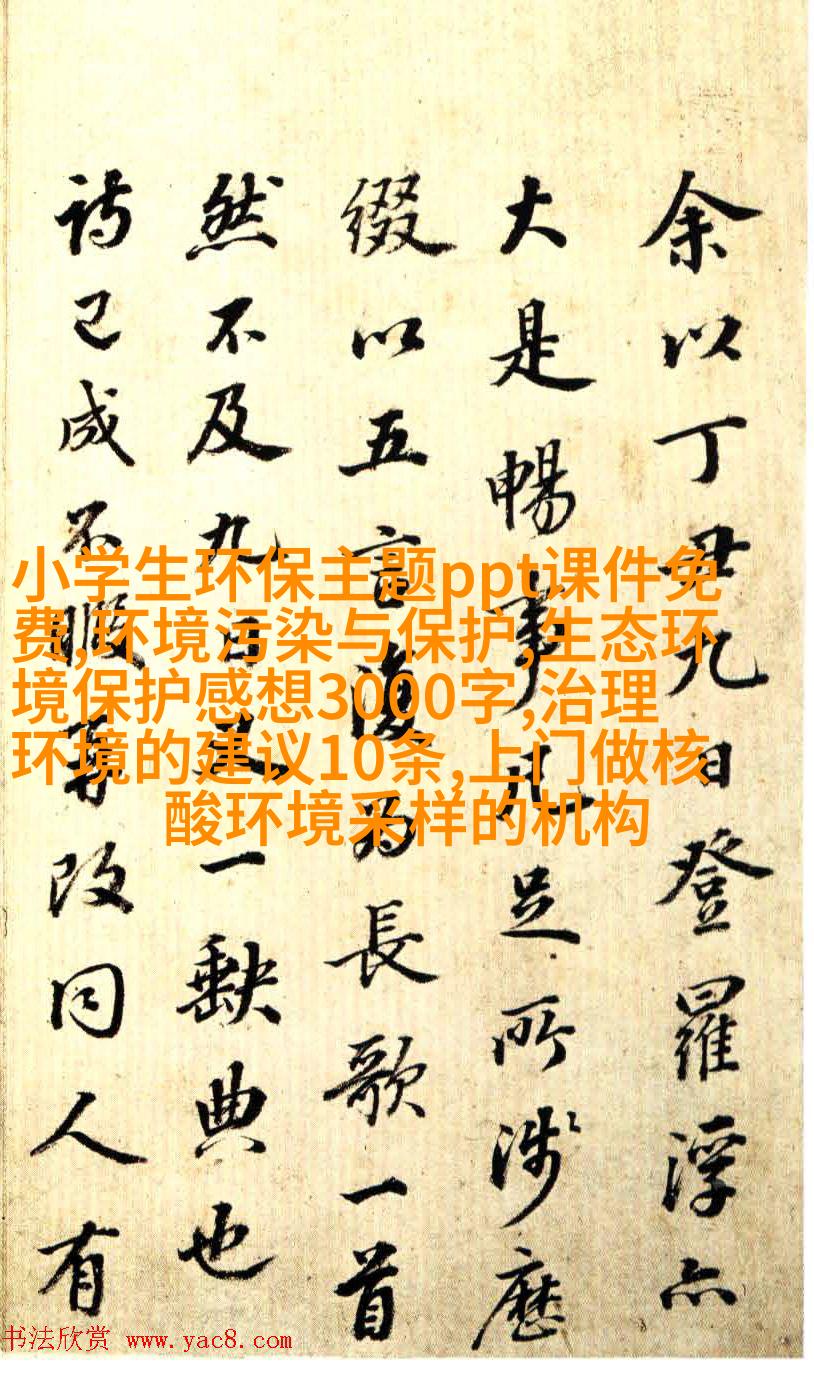 余以丁丑九日登羅浮亦
大是暢事凡足所涉歷
綴以五言復為長歌一首
然不及九日是一缺典也
詩已成不暇再改同人有
小学生环保主题ppt课件免
费,环境污染与保护,生态环
境保护感想3000字,治理
环境的建议10条,上门做核
酸环境采样的机构
书法欣赏 www.yac8.com